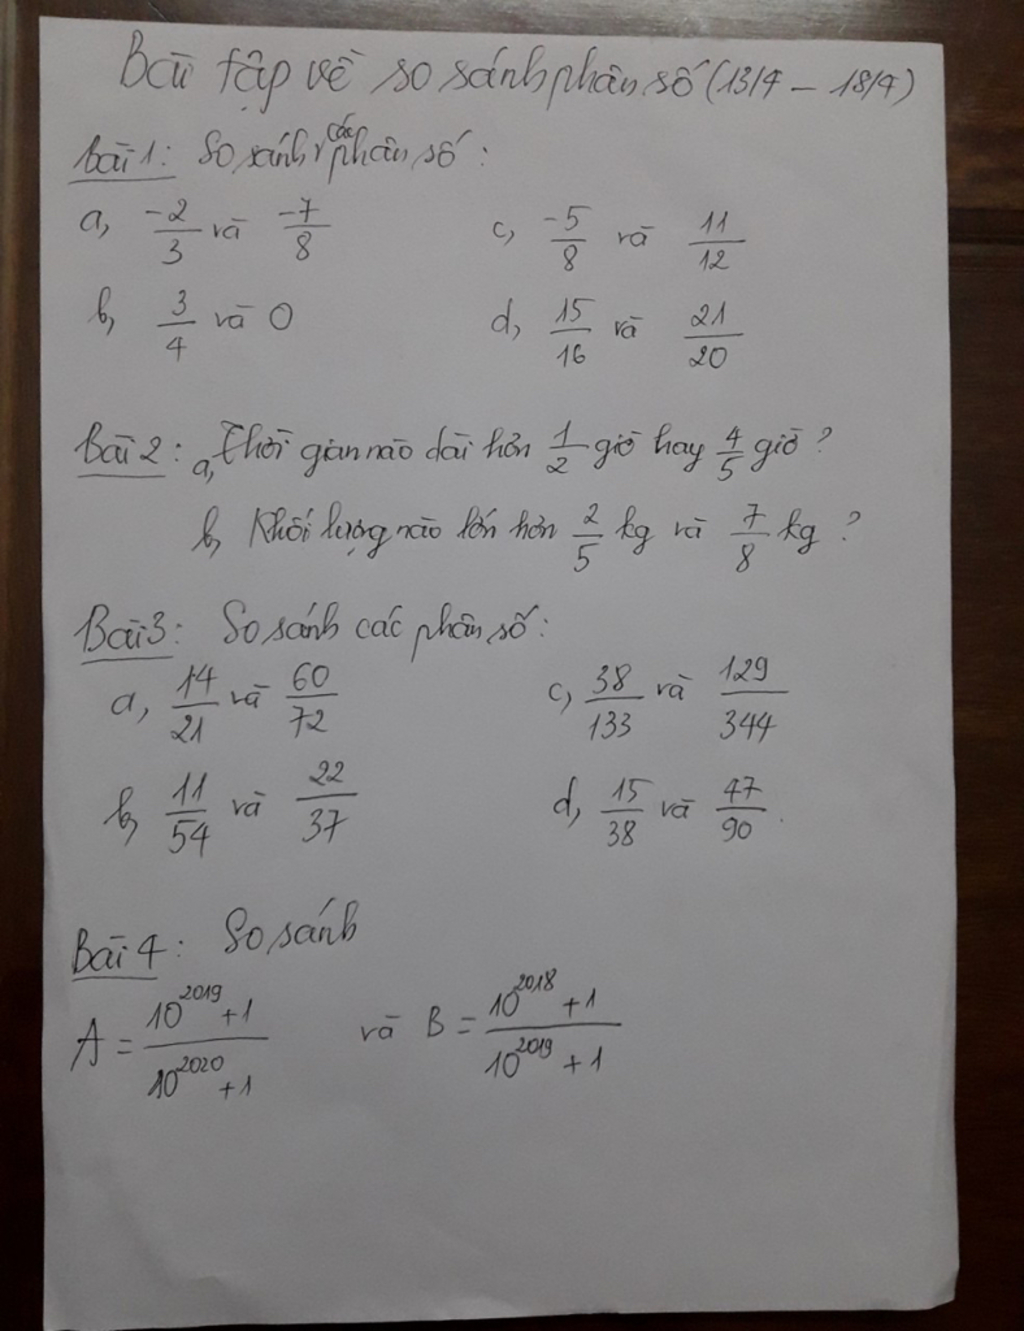 Bài tập về so sánh phân số (13/4 - 18/4)
Bài 1: So sánh các phân số:
a, -2/3 và -7/8
c, -5/8 và 11/12
b, 3/4 và 0
d, 15/16 và 21/20
Bài 2: a, Thời gian nào dài hơn 1/2 giờ hay 4/5 giờ?
b, Khối lượng nào lớn hơn 2/5 kg và 7/8 kg?
Bài 3: So sánh các phân số:
a, 14/21 và 60/72
c, 38/133 và 129/344
b, 11/54 và 22/37
d, 15/38 và 47/90.
Bài 4: So sánh
A = (10^2019 + 1)/(10^2020 + 1) và B = (10^2018 + 1)/(10^2019 + 1)